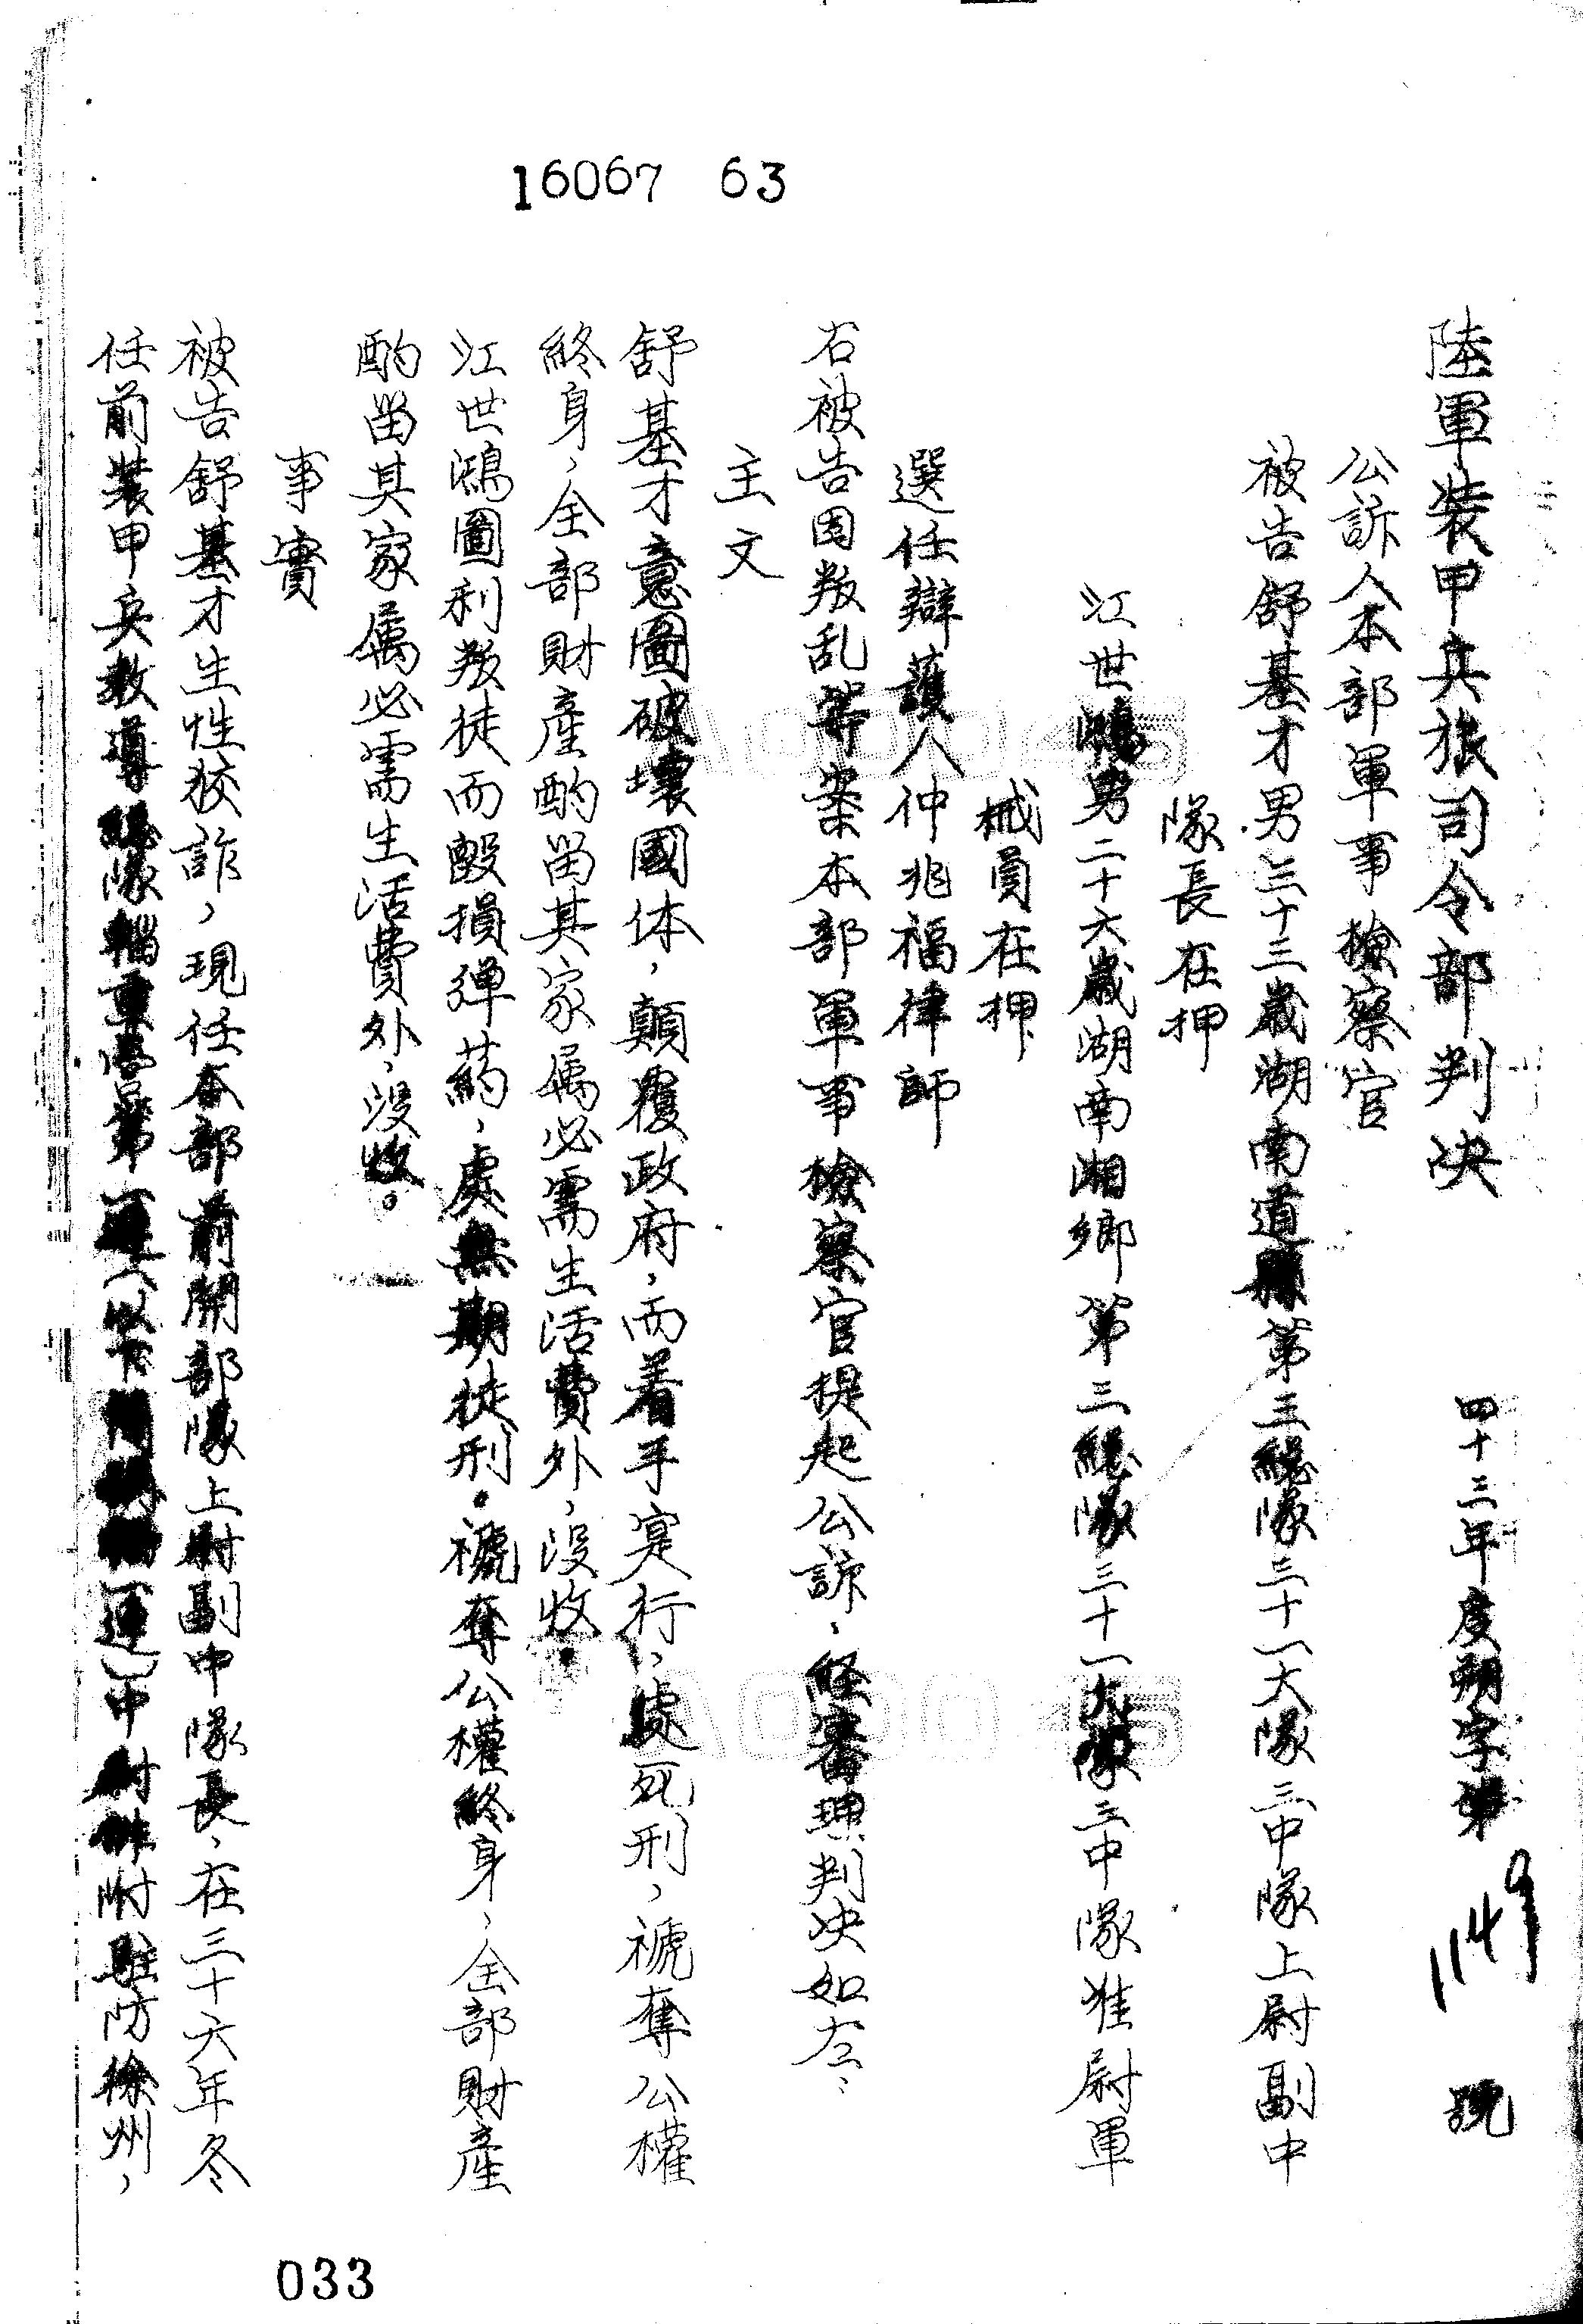 16067 63
陸軍裝甲兵旅司令部判決 四十三年度翊字第1149號
公訴人本部軍事檢察官
被告舒基才男三十三歲湖南道縣第三總隊三十一大隊三中隊上尉副中
隊長在押
江世鴻男二十六歲湖南湘鄉第三總隊三十一大隊三中隊准尉軍
械員在押
選任辯護人仲兆福律師
右被告因叛乱等案本部軍事檢察官提起公訴，經審理判决如左、
主文
舒基才意圖破壞國体，顛覆政府，而着手实行，處死刑，褫奪公權
終身，全部財產酌留其家属必需生活費外，沒收。
江世鴻圖利叛徒而毀損弹葯，處無期徒刑。褫奪公權終身，全部財產
酌留其家属必需生活費外，沒收。
事實
被告舒基才生性狡詐，現任本部前開部隊上尉副中隊長，在三十六年冬
任前裝甲兵教導總隊輜重營第一連（以下簡稱輜一連）中尉附駐防徐州，
033